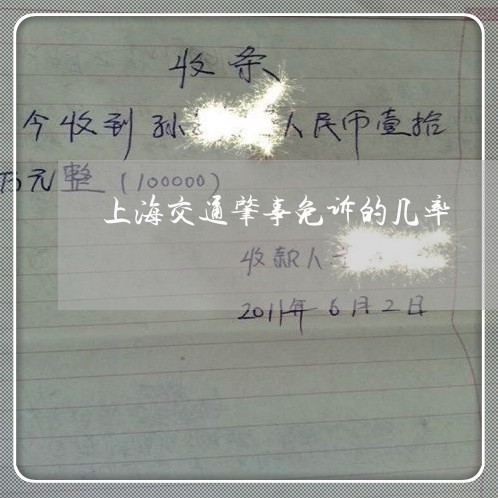 收条
今收到 孙 人民币壹拾
万元整（100000）
上海交通肇事免诉的几率
收款人
2011年6月2日